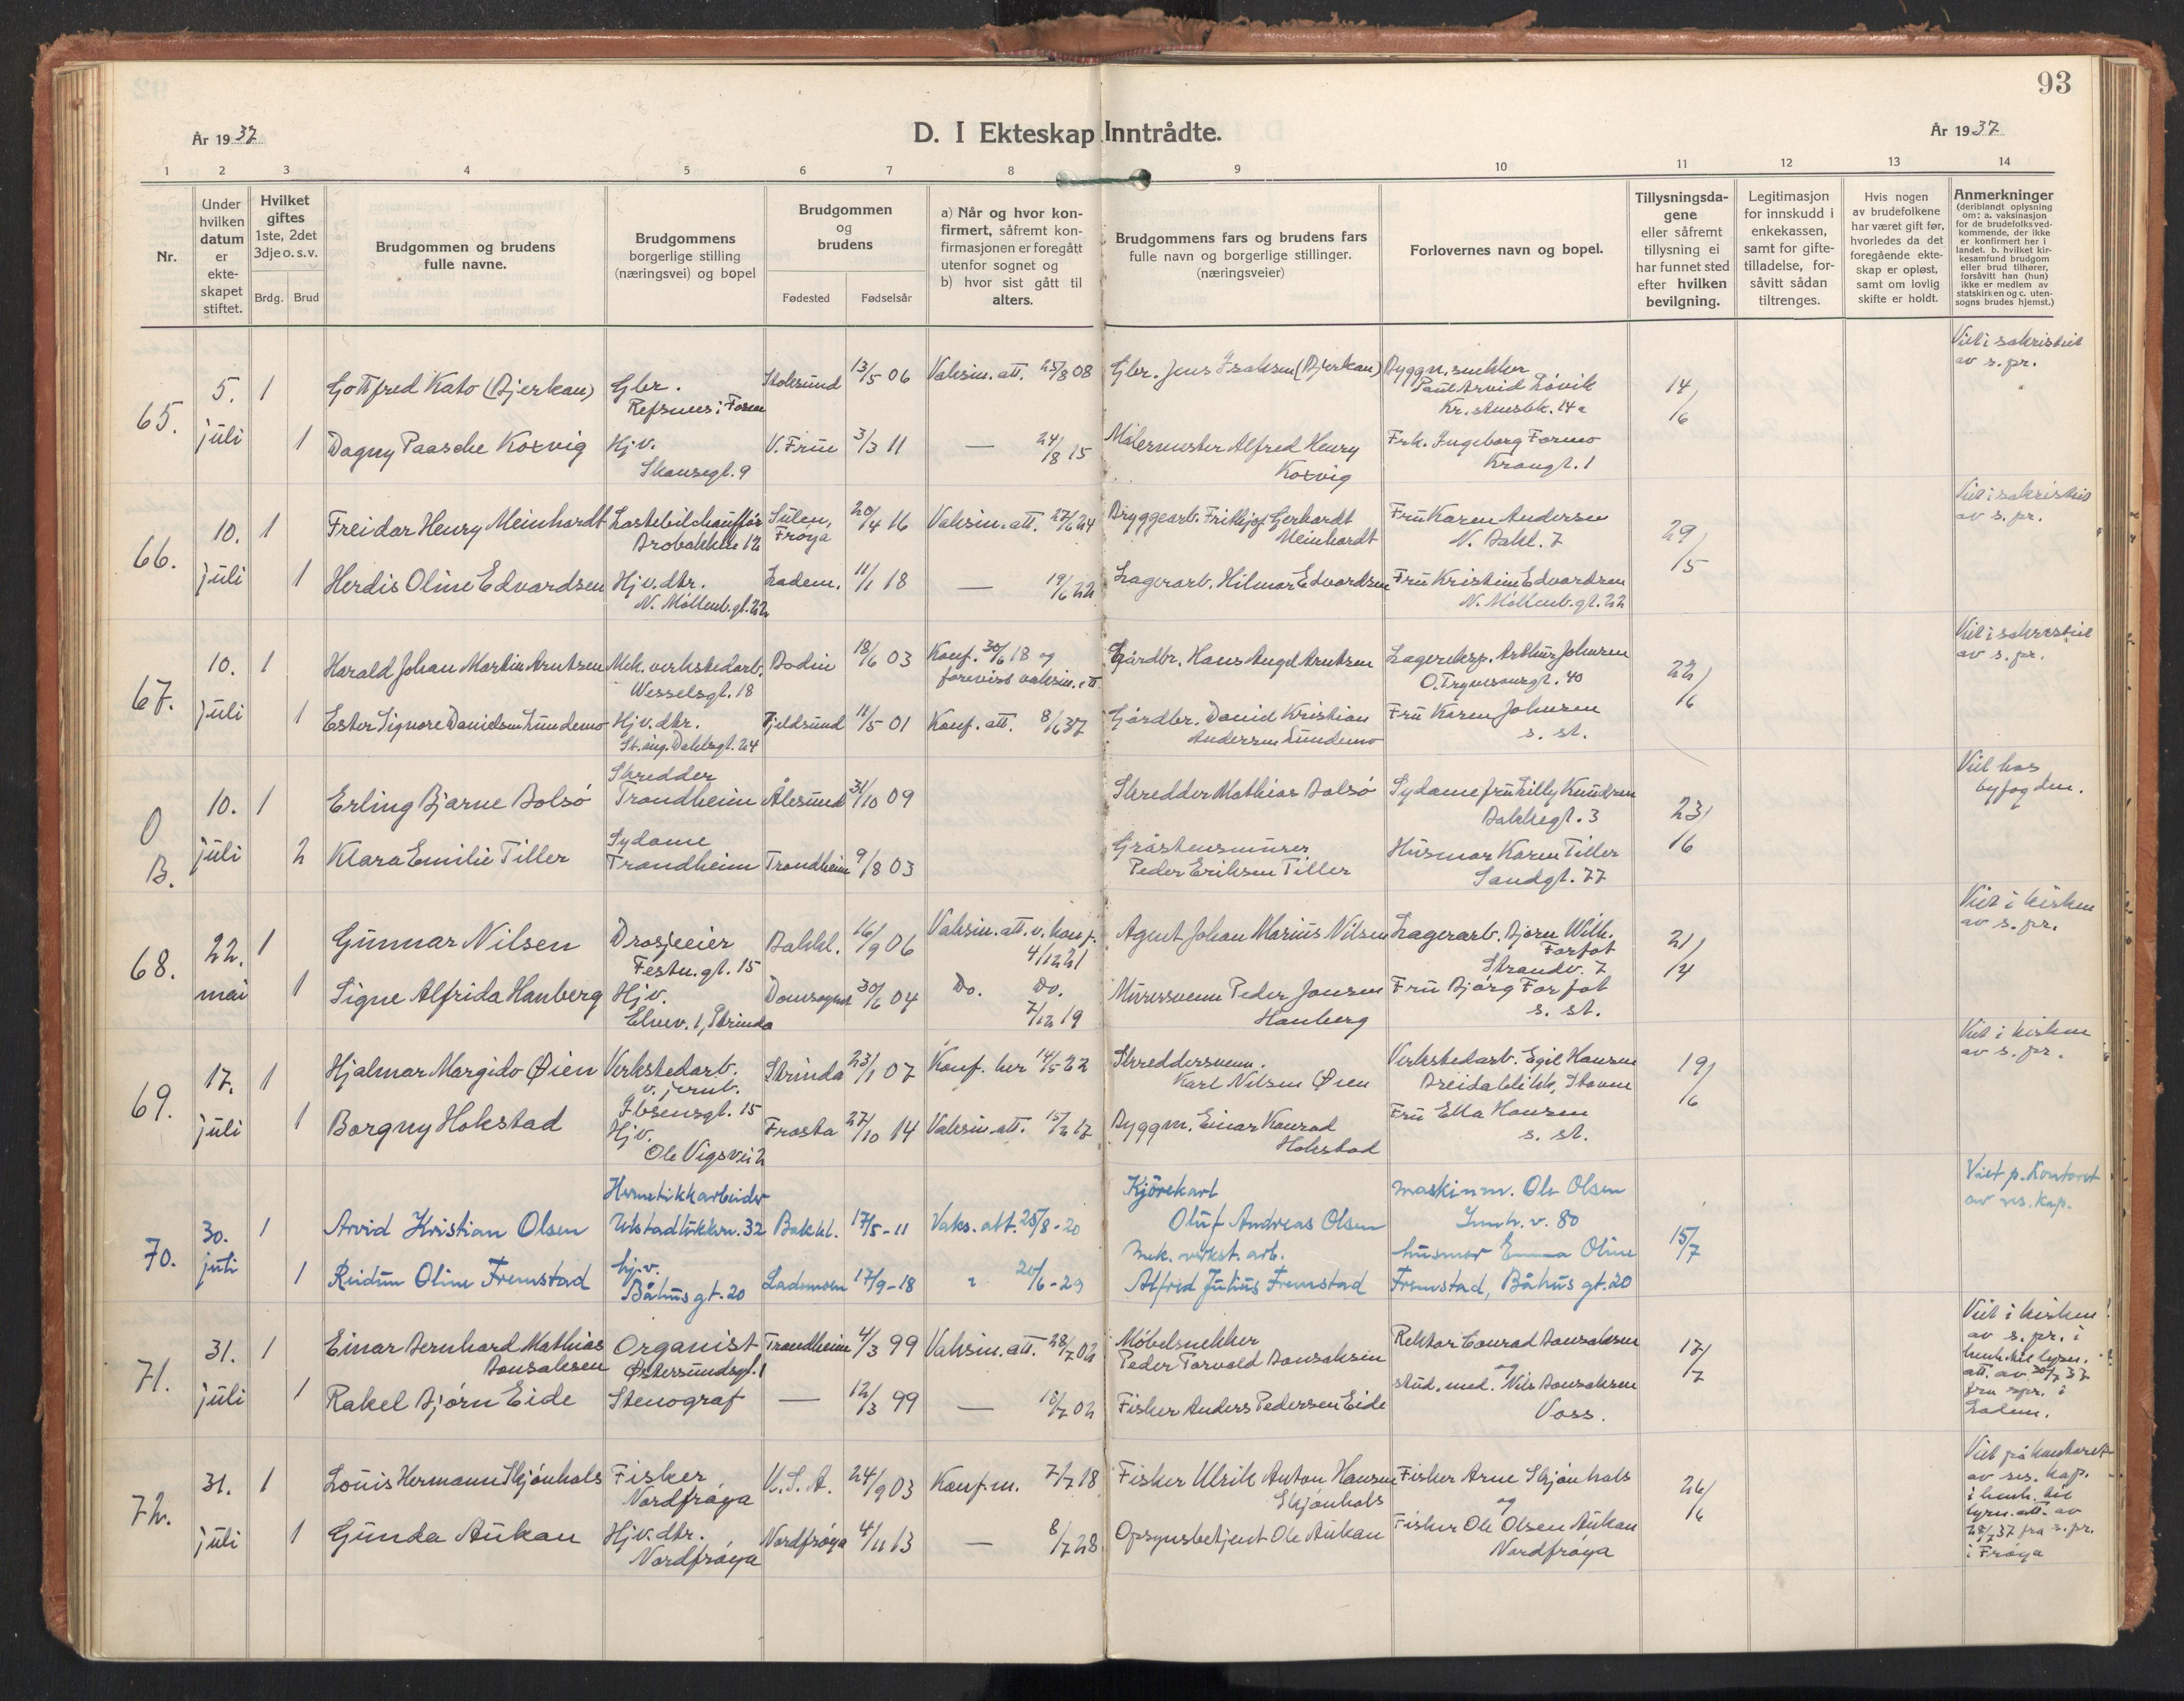 93
År 1937
D. I Ekteskap Inntrådte.
År 1937
1 2 3 4 5 6 7 8 9 10 11 12 13 14
Nr.
Under hvilken datum er ekteskapet stiftet.
Hvilket giftes 1ste, 2det 3dje o. s. v.
Brdg. Brud
Brudgommen og brudens fulle navne.
Brudgommens borgerlige stilling (næringsvei) og bopel
Brudgommen og brudens
Fødested Fødselsår
a) Når og hvor konfirmert, såfremt konfirmasjonen er foregått utenfor sognet og b) hvor sist gått til alters.
Brudgommens fars og brudens fars fulle navn og borgerlige stillinger. (næringsveier)
Forlovernes navn og bopel.
Tillysningsdagene eller såfremt tillysning ei har funnet sted efter hvilken bevilgning.
Legitimasjon for innskudd i enkekassen, samt for giftetilladelse, forsåvitt sådan tiltrenges.
Hvis nogen av brudefolkene har været gift før, hvorledes da det foregående ekteskap er opløst, samt om lovlig skifte er holdt.
Anmerkninger (deriblandt oplysning om: a. vaksinasjon for de brudefolksvedkommende, der ikke er konfirmert her i landet. b. hvilket kirkesamfund brudgom eller brud tilhører, forsåvitt han (hun) ikke er medlem av statskirken og c. utensogns brudes hjemst.)
65. 5. juli 1 Gottfred Kato (Bjerkan) Gbr. Refsnes i Fosen Stoksund 13/5 06 Vaksin. att. 25/8 08 Gbr. Jens Isaksen (Bjerkan) Byggm. snekker Paul Arvid Løvik Kr. stensbk. 14a 14/6 Viet i sakristiet av s. pr.
1 Dagny Paasche Koxvig Hj.v. Skansegt. 9 V. Frue 3/3 11 — 24/8 15 Malermester Alfred Henry Koxvig Frk. Ingeborg Formo Krangt. 1
66. 10. juli 1 Freidar Henry Meinhardt Lastebilchauffør Brobakken 12 Sulen, Frøya 20/4 16 Vaksin. att. 27/6 24 Bryggearb. Frithjof Gerhardt Meinhardt Fru Karen Andersen N. Bakl. 7 29/5 Viet i sakristiet av s. pr.
1 Herdis Oline Edvardsen Hj.v. dtr. N. Møllenb. gt. 22 Ladem. 11/1 18 — 19/6 22 Lagerarb. Hilmar Edvardsen Fru Kristine Edvardsen N. Møllenb. gt. 22
67. 10. juli 1 Harald Johan Martin Arntsen Mek. verkstedarb. Wesselsgt. 18 Bodin 18/6 03 Konf. 30/6 18 og forevist vaksin. att. Gårdbr. Hans Angel Arntsen Lagereksp. Arthur Johnsen O. Trygvesonsgt. 40 22/6 Viet i sakristiet av s. pr.
1 Ester Signore Danielsen Lundemo Hj.v. dtr. St. ing. Dahlsgt. 24 Tjeldsund 11/5 01 Konf. att. 8/6 37 Gårdbr. David Kristian Andersen Lundemo Fru Karen Johnsen s. st.
O B. 10. juli 1 Erling Bjarne Bolsø Skredder Trondheim Ålesund 31/10 09 Skredder Mathias Bolsø Sydame fru Lilly Knudsen Bakkegt. 3 23/6 Viet hos byfogden.
2 Klara Emilie Tiller Sydame Trondheim Trondheim 9/8 03 Gråstensmurer Peder Eriksen Tiller Husmor Karen Tiller Sandgt. 77
68. 22. mai 1 Gunnar Nilsen Drosjeeier Festn. gt. 15 Bakkl. 16/9 06 Vaksin. att. v. konf. 4/12 21 Agent Johan Marius Nilsen Lagerarb. Bjørn Wilh. Forfot Strandv. 7 21/4 Viet i kirken av s. pr.
1 Signe Alfrida Hanberg Hj.v. Elvev. 1, Strinda Domsognet 30/6 04 Do. Do. 7/12 19 Murersvenn Peder Jonsen Hanberg Fru Bjørg Forfot s. st.
69. 17. juli 1 Hjalmar Margido Øien Verkstedarb. v. jernb. Ibsensgt. 15 Strinda 23/1 07 Konf. her 14/5 22 Skreddersvenn. Karl Nilsen Øien Verkstedarb. Egil Hansen Breidablikk, Stavne 19/6 Viet i kirken av s. pr.
1 Borgny Hokstad Hj.v. Ole Vigsvei 2 Frosta 27/10 14 Vaksin. att. 15/2 17 Byggm. Einar Konrad Hokstad Fru Ella Hansen s. st.
70. 30. juli 1 Arvid Kristian Olsen Hermetikkarbeider Ulstadløkkvn. 32 Bakkl. 17/5-11 Vaks. att. 25/8-20 Kjørekarl Oluf Andreas Olsen Maskinm. Ole Olsen Innh. v. 80 15/7 Viet p. Kontoret av res. kap.
1 Reidun Oline Fremstad hj.v. Båhus gt. 20 Lademoen 17/9-18 " 20/6-29 Mek. verkst. arb. Alfred Julius Fremstad husmor Emma Oline Fremstad, Båhus gt. 20
71. 31. juli 1 Einar Bernhard Mathias Bonsaksen Organist Østersundsgt. 1 Trondheim 4/3 99 Vaksin. att. 28/7 02 Møbelsnekker Peder Torvald Bonsaksen Rektor Conrad Bonsaksen og 17/7 Viet i kirken av s. pr. i henh. til lysn. att. av 30/7 37 fra spr. i Ladem.
1 Rakel Bjørn Eide Stenograf — 12/3 99 — 18/7 02 Fisker Anders Pedersen Eide stud. med. Nils Bonsaksen Voss.
72. 31. juli 1 Louis Hermann Skjønhals Fisker Nordfrøya U. S. A. 24/9 03 Konf. m. 7/7 18 Fisker Ulrik Anton Hansen Skjønhals Fisker Arne Skjønhals og 26/6 Viet på kontoret av res. kap. i henh. til lysn. att. av 28/7 37 fra s. pr. i Frøya
1 Gunda Aukan Hj.v. dtr. Nordfrøya Nordfrøya 4/11 13 — 8/7 28 Opsynsbetjent Ole Aukan Fisker Ole Olsen Aukan Nordfrøya